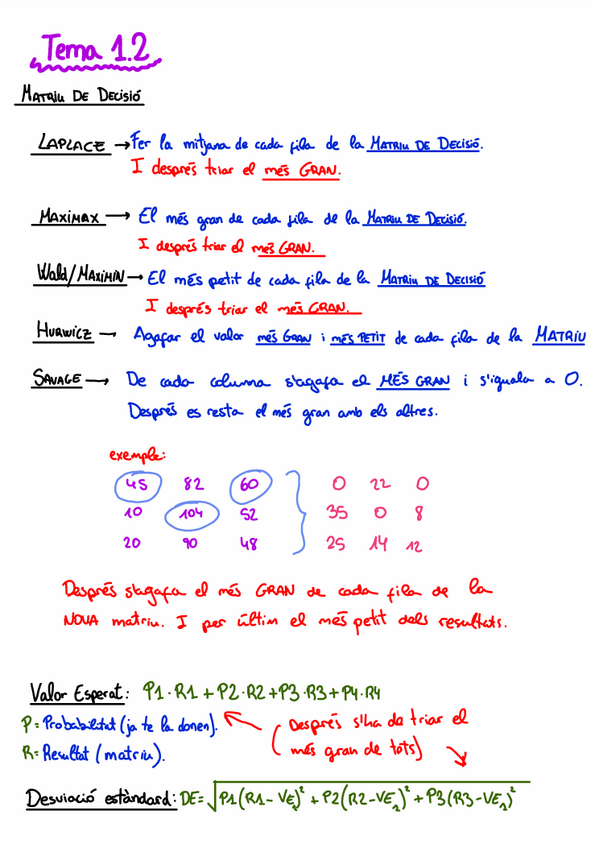 Tema 1.2
MATRIU DE DECISIÓ
LAPLACE → Fer la mitjana de cada fila de la MATRIU DE DECISIÓ.
I després triar el més GRAN.
MAXIMAX → El més gran de cada fila de la MATRIU DE DECISIÓ.
I després triar el més GRAN.
Wald/MAXIMIN → El més petit de cada fila de la MATRIU DE DECISIÓ
I després triar el més GRAN.
HURWICZ → Agafar el valor més GRAN i més PETIT de cada fila de la MATRIU
SAVAGE → De cada columna s'agafa el MÉS GRAN i s'iguala a 0.
Després es resta el més gran amb els altres.
exemple:
45 82 60 0 22 0
10 104 52 35 0 8
20 90 48 25 14 12
Després s'agafa el més GRAN de cada fila de la
NOVA matriu. I per últim el més petit dels resultats.
Valor Esperat: P1·R1 + P2·R2 + P3·R3 + P4·R4
P = Probabilitat (ja te la donen).
R = Resultat (matriu).
(Després s'ha de triar el
més gran de tots)
Desviació estàndard: DE = √P1(R1 - VE₁)² + P2(R2 - VE₁)² + P3(R3 - VE₁)²